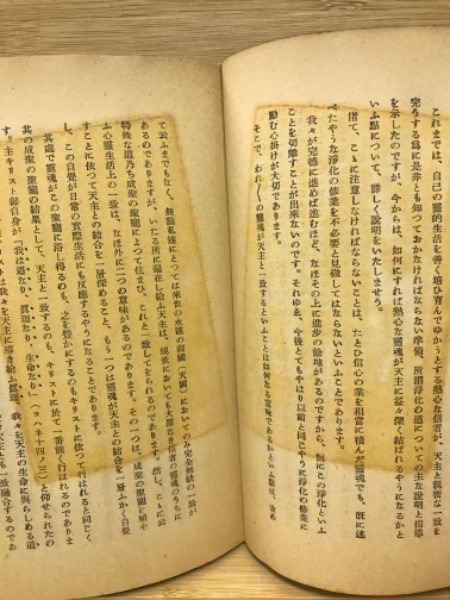 これまでは、自己の靈的生活を善く培ひ育んでゆかうとする熱心な信者が、天主と親密な一致を
完うする爲に是非とも知つておかなければならない準備、所謂淨化の道についての主な說明と指導
を示したのですが、今からは、如何にすれば熱心な靈魂が天主に益々深く結ばれるやうになるかと
いふ點について、詳しく說明をいたしませう。
偖て、こゝに注意しなければならないことは、たとひ信心の業を相當に積んだ靈魂でも、既に述
べたやうな淨化の修業を不必要と見做してはならないといふことであります。
我々が完德に進めば進むほど、なほその上に進步の餘地があるのですから、恒にこの淨化といふ
ことを切離すことが出來ないのです。それゆゑ、今後とてもやはり以前と同じやうに淨化の修業に
勵む心掛けが大切であります。
そこで、われ〳〵の靈魂が天主と一致するといふことは如何なる意味であるかといふ點は、改め
て云ふまでもなく、無論私達にとつては來世の永遠の御國（天國）においてのみ完全無缺の一致が
あるのでありますが、いたる所に遍在し給ふ天主は、現世においても大罪なき信者の靈魂のうちに
特殊な道乃ち成聖の聖寵によつて住まひ、これと一致してをられるのであります。然し、こゝに云
ふ心靈生活上の一致は、なほ外に二つの意味があるのであります。その一つは、成聖の聖寵を殖や
すことに依つて天主との結合を一層深めること、もう一つは靈魂が天主との結合を一層ふかく自覺
し、この自覺が日常の實際生活にも反應するやうになることであります。
其處で靈魂がこの聖寵に浴し得るのも、之を豐かにするのもキリストに依つて行はれると同じく
其の成聖の聖寵の結果として、天主と一致するのも、キリストに於て一番能く行はれるのでありま
す。主キリスト御自身が「我は道なり、眞理なり、生命なり」（ヨハネ十四ノ三）と仰せられたの